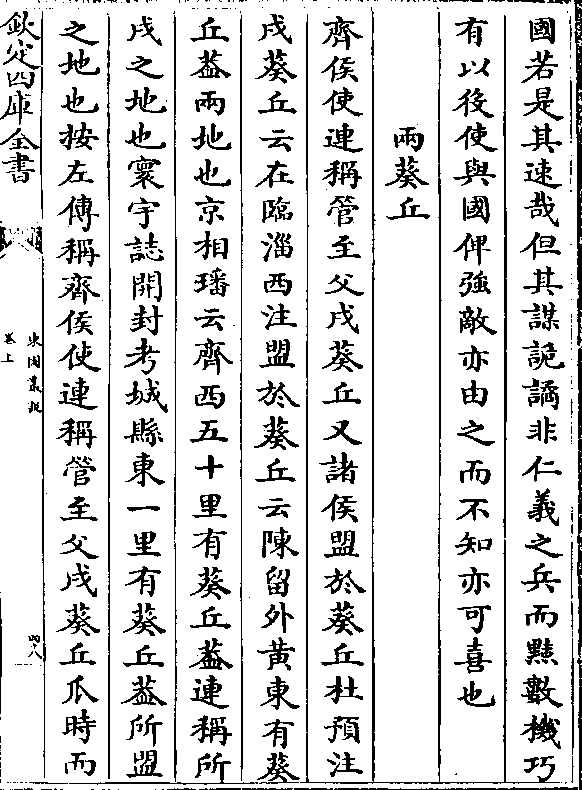 國若是其速哉但其謀詭譎非仁義之兵而黠數機巧
有以後使與國俾強敵亦由之而不知亦可喜也
兩葵丘
齊侯使連稱管至父戍葵丘又諸侯盟於葵丘杜預注
戍葵丘云在臨淄西注盟於葵丘云陳留外黄東有葵
丘葢兩地也京相璠云齊西五十里有葵丘葢連稱所
戍之地也寰宇誌開封考城縣東一里有葵丘葢所盟
之地也按左傳稱齊侯使連稱管至父戍葵丘瓜時而
欽定四庫全書
卷上